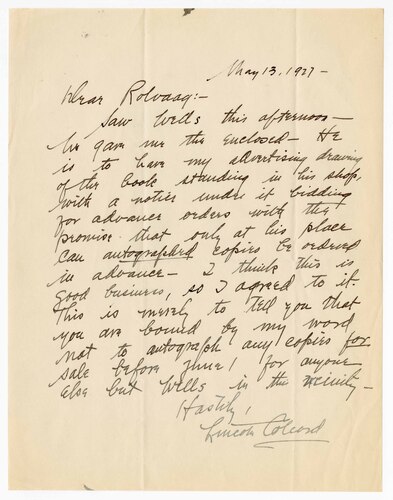 May 13, 1927-
Dear Rolvaag:-
Saw Wells this afternoon-
he gave me the enclosed- He
is to have my advertising drawing
of the book standing in his shop,
with a notice under it bidding
for advance orders with the
promise that only at his place
can autographed copies be ordered
in advance- I think this is
good business, so I agreed to it.
This is merely to tell you that
you are bound by my word
not to autograph any copies for
sale before June 1 for anyone
else but Wells in the vicinity-
Hastily,
Lincoln Colcord